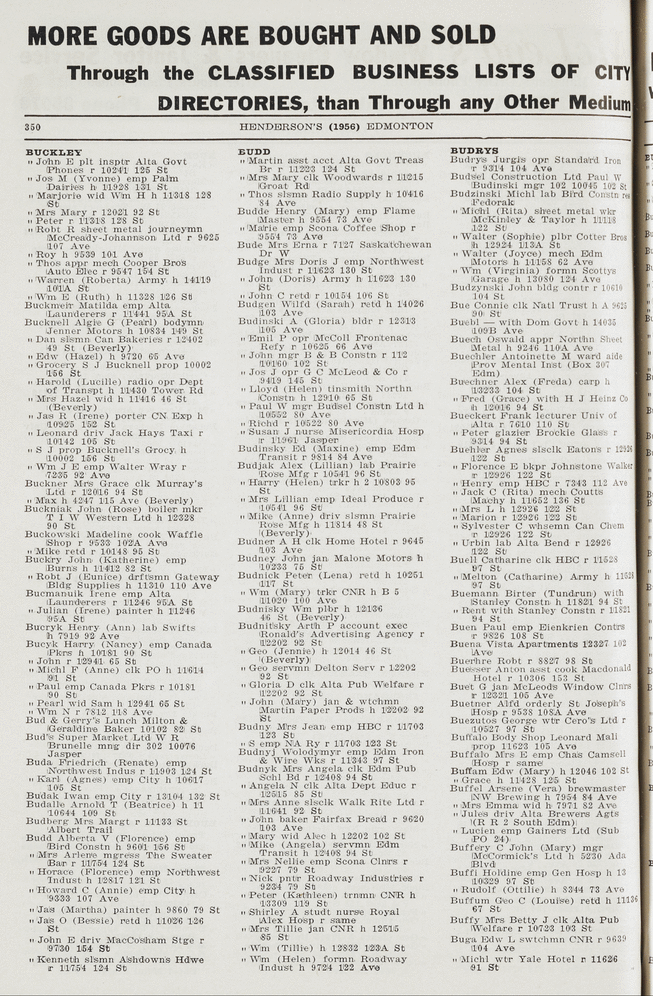 MORE GOODS ARE BOUGHT AND SOLD
Through the CLASSIFIED BUSINESS LISTS OF CITY
DIRECTORIES, than Through any Other Medium
350
HENDERSON'S (1956) EDMONTON
BUCKLEY
" John E plt insptr Alta Govt
Phones r 10241 125 St
" Jos M (Yvonne) emp Palm
Dairies h 11928 131 St
" Marjorie wid Wm H h 11318 128
St
" Mrs Mary r 12021 92 St
" Peter r 11318 128 St
" Robt R sheet metal journeymn
McCready-Johannson Ltd r 9625
107 Ave
" Roy h 9539 101 Ave
" Thos appr mech Cooper Bro's
Auto Elec r 9547 154 St
" Warren (Roberta) Army h 14119
101A St
" Wm E (Ruth) h 11328 126 St
Bucknell Matilda emp Alta
Launderers r 11441 95A St
Bucknell Algie G (Pearl) bodymn
Jenner Motors h 10834 149 St
" Dan slsmn Can Bakeries r 12402
49 St (Beverly)
" Edw (Hazel) h 9720 65 Ave
" Grocery S J Bucknell prop 10002
156 St
" Harold (Lucille) radio opr Dept
of Transpt h 11430 Tower Rd
" Mrs Hazel wid h 11416 46 St
(Beverly)
" Jas R (Irene) porter CN Exp h
10925 152 St
" Leonard driv Jack Hays Taxi r
10142 105 St
" S J prop Bucknell's Grocy h
10002 156 St
" Wm J E emp Walter Wray r
7235 92 Ave
Buckner Mrs Grace clk Murray's
Ltd r 12016 94 St
" Max h 4247 115 Ave (Beverly)
Buckniak John (Rose) boiler mkr
T I W Western Ltd h 12328
90 St
Buckowski Madeline cook Waffle
Shop r 9533 102A Ave
" Mike retd r 10148 95 St
Buckry John (Katherine) emp
Burns h 11412 82 St
" Robt J (Eunice) drftsmn Gateway
Bldg Supplies h 11310 110 Ave
Bucmanuik Irene emp Alta
Launderers r 11246 95A St
" Julian (Irene) painter h 11246
95A St
Bucryk Henry (Ann) lab Swifts
h 7919 92 Ave
Bucyk Harry (Nancy) emp Canada
Pkrs h 10181 90 St
" John r 12941 65 St
" Michl F (Anne) clk PO h 11614
91 St
" Paul emp Canada Pkrs r 10181
90 St
" Pearl wid Sam h 12941 65 St
" Wm N r 7812 118 Ave
Bud & Gerry's Lunch Milton &
Geraldine Baker 10102 82 St
Bud's Super Market Ltd W R
Brunelle mng dir 302 10076
Jasper
Buda Friedrich (Renate) emp
Northwest Indus r 11903 124 St
" Karl (Agnes) emp City h 10617
105 St
Budak Iwan emp City r 13104 132 St
Budalle Arnold T (Beatrice) h 11
10644 109 St
Budberg Mrs Margt r 11133 St
Albert Trail
Budd Alberta V (Florence) emp
Bird Constn h 9601 156 St
" Mrs Arlene mgress The Sweater
Bar r 11754 124 St
" Horace (Florence) emp Northwest
Indust h 12817 121 St
" Howard C (Annie) emp City h
9333 107 Ave
" Jas (Martha) painter h 9860 79 St
" Jas O (Bessie) retd h 11026 126
St
" John E driv MacCosham Stge r
9730 154 St
" Kenneth slsmn Ashdowns Hdwe
r 11754 124 St
BUDD
" Martin asst acct Alta Govt Treas
Br r 11223 124 St
" Mrs Mary clk Woodwards r 11215
Groat Rd
" Thos slsmn Radio Supply h 10416
84 Ave
Budde Henry (Mary) emp Flame
Master h 9554 73 Ave
" Marie emp Scona Coffee Shop r
9554 73 Ave
Bude Mrs Erna r 7127 Saskatchewan
Dr W
Budge Mrs Doris J emp Northwest
Indust r 11623 130 St
" John (Doris) Army h 11623 130
St
" John C retd r 10154 106 St
Budgen Wilfd (Sarah) retd h 14026
103 Ave
Budinski A (Gloria) bldr r 12313
105 Ave
" Emil P opr McColl Frontenac
Refy r 10625 66 Ave
" John mgr B & B Constn r 112
10160 102 St
" Jos J opr G C McLeod & Co r
9419 145 St
" Lloyd (Helen) tinsmith Northn
Constn h 12910 65 St
" Paul W mgr Budsel Constn Ltd h
10552 80 Ave
" Richd r 10522 80 Ave
" Susan J nurse Misericordia Hosp
r 11961 Jasper
Budinsky Ed (Maxine) emp Edm
Transit h 9814 84 Ave
Budjak Alex (Lillian) lab Prairie
Rose Mfg r 10541 96 St
" Harry (Helen) trkr h 2 10803 95
St
" Mrs Lillian emp Ideal Produce r
10541 96 St
" Mike (Anne) driv slsmn Prairie
Rose Mfg h 11814 48 St
(Beverly)
Budner A H clk Home Hotel r 9645
103 Ave
Budney John jan Malone Motors h
10233 75 St
Budnick Peter (Lena) retd h 10251
117 St
" Wm (Mary) trkr CNR h B 5
11020 100 Ave
Budnisky Wm plbr h 12136
46 St (Beverly)
Budnitsky Arth P account exec
Ronald's Advertising Agency r
12202 92 St
" Geo (Jennie) h 12014 46 St
(Beverly)
" Geo servmn Delta Serv r 12202
92 St
" Gloria D clk Alta Pub Welfare r
12202 92 St
" John (Mary) jan & wtchmn
Martin Paper Prods h 12202 92
St
Budny Mrs Jean emp HBC r 11703
123 St
" S emp NA Ry r 11703 123 St
Budnyj Wolodymyr emp Edm Iron
& Wire Wks r 11343 97 St
Budnyk Mrs Angela clk Edm Pub
Schl Bd r 12408 94 St
" Angela N clk Alta Dept Educ r
12515 85 St
" Mrs Anne slsclk Walk Rite Ltd r
11641 92 St
" John baker Fairfax Bread r 9620
103 Ave
" Mary wid Alec h 12202 102 St
" Mike (Angela) servmn Edm
Transit h 12408 94 St
" Mrs Nellie emp Scona Clnrs r
9227 79 St
" Nick pntr Roadway Industries r
9234 79 St
" Peter (Kathleen) trnmn CNR h
13309 119 St
" Shirley A studt nurse Royal
Alex Hosp r same
" Mrs Tillie jan CNR h 12515
85 St
" Wm (Tillie) h 12832 123A St
" Wm (Helen) formn Roadway
Indust h 9724 122 Ave
BUDRYS
Budrys Jurgis opr Standard Iron
r 9314 104 Ave
Budsel Construction Ltd Paul W
Budinski mgr 102 10045 102 St
Budzinski Michl lab Bird Constn res
Fedorak
" Michl (Rita) sheet metal wkr
McKinley & Taylor h 11118
122 St
" Walter (Sophie) plbr Cotter Bros
h 12924 113A St
" Walter (Joyce) mech Edm
Motors h 11158 62 Ave
" Wm (Virginia) formn Scottys
Garage h 13080 124 Ave
Budzynski John bldg contr r 10610
104 St
Bue Connie clk Natl Trust h A 9625
90 St
Buebl — with Dom Govt h 14035
109B Ave
Buech Oswald appr Northn Sheet
Metal h 9246 110A Ave
Buechler Antoinette M ward aide
Prov Mental Inst (Box 307
Edm)
Buechner Alex (Freda) carp h
13233 104 St
" Fred (Grace) with H J Heinz Co
h 12016 94 St
Bueckert Frank lecturer Univ of
Alta r 7610 110 St
" Peter glazier Brockie Glass r
9314 94 St
Buehler Agnes slsclk Eatons r 12926
122 St
" Florence E bkpr Johnstone Walker
r 12926 122 St
" Henry emp HBC r 7343 112 Ave
" Jack C (Rita) mech Coutts
Machy h 11652 136 St
" Mrs L h 12926 122 St
" Marion r 12926 122 St
" Sylvester C whsemn Can Chem
r 12926 122 St
" Urbin lab Alta Bend r 12926
122 St
Buell Catharine clk HBC r 11528
97 St
" Melton (Catharine) Army h 11528
97 St
Buemann Birter (Tundrun) with
Stanley Constn h 11821 94 St
" Rent with Stanley Constn r 11821
94 St
Buen Paul emp Eienkrien Contrs
r 9826 108 St
Buena Vista Apartments 12327 102
Ave
Buerhre Robt r 8827 98 St
Buesser Anton asst cook Macdonald
Hotel r 10306 153 St
Buet G jan McLeods Window Clnrs
r 12321 105 Ave
Buetner Alfd orderly St Joseph's
Hosp r 9538 108A Ave
Buezutos George wtr Cero's Ltd r
10527 97 St
Buffalo Body Shop Leonard Mall
prop 11623 105 Ave
Buffalo Mrs E emp Chas Camsell
Hosp r same
Buffam Edw (Mary) h 12046 102 St
" Grace h 11428 125 St
Buffel Arsene (Vera) brewmaster
NW Brewing h 7954 84 Ave
" Mrs Emma wid h 7971 82 Ave
" Jules driv Alta Brewers Agts
(R R 2 South Edm)
" Lucien emp Gainers Ltd (Sub
PO 24)
Buffery C John (Mary) mgr
McCormick's Ltd h 5230 Ada
Blvd
Buffi Holding emp Gen Hosp h 13
10329 97 St
" Rudolf (Ottilie) h 8344 73 Ave
Buffum Geo C (Louise) retd h 11136
67 St
Buffy Mrs Betty J clk Alta Pub
Welfare r 10723 103 St
Buga Edw L swtchmn CNR r 9639
104 Ave
" Michl wtr Yale Hotel r 11626
91 St